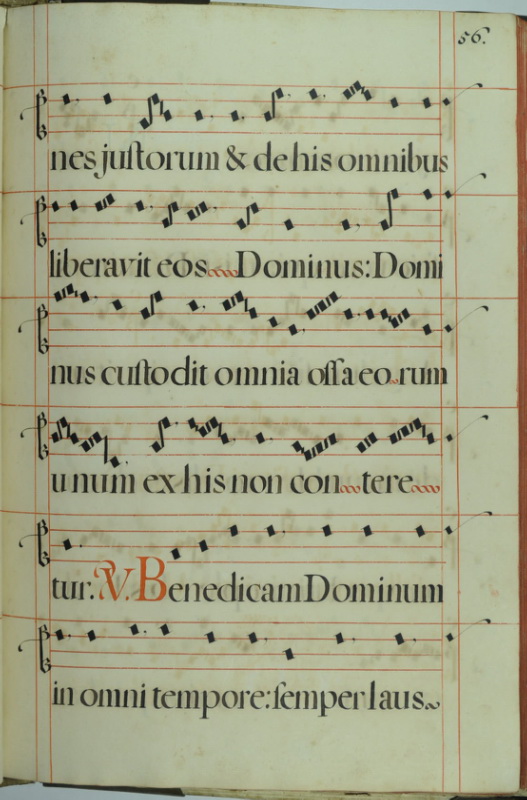 56.
nes juſtorum & de his omnibus
liberavit eos Dominus: Domi
nus cuſtodit omnia oſſa eo rum
unum ex his non con tere
tur. V. Benedicam Dominum
in omni tempore: ſemper laus